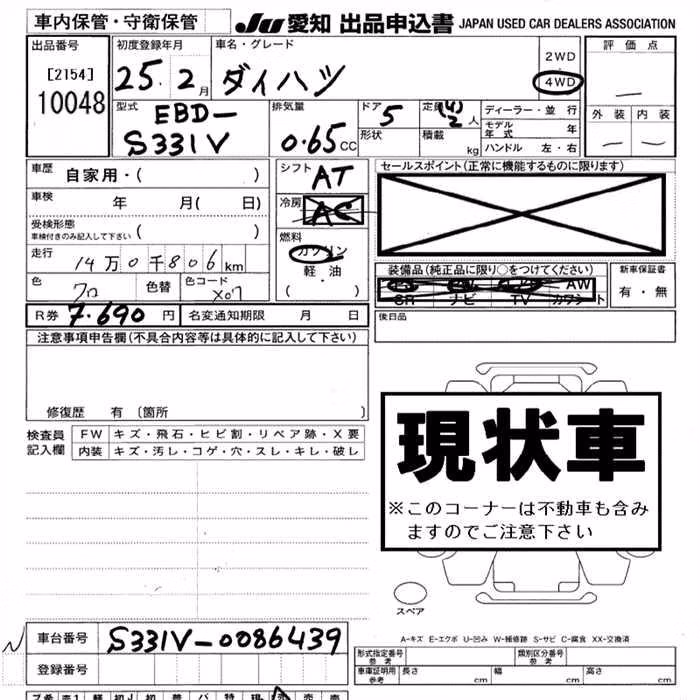 車内保管・守衛保管
JU 愛知 出品申込書 JAPAN USED CAR DEALERS ASSOCIATION
出品番号
[2154]
10048
初度登録年月
25. 2月
車名・グレード
ダイハツ
2WD
4WD
評価点
—
外装 内装
— —
型式
EBD-
S331V
排気量
0.65CC
ドア
5
形状
定員(4)
2人
積載
kg
ディーラー・並行
モデル年式 年
ハンドル 左・右
車歴 自家用・( )
車検 年 月( 日)
受検形態
車検付きのみ記入して下さい ( )
走行
14万0千806km
色
クロ
色替
色コード
X07
シフト
AT
冷房
AC
燃料
ガソリン
軽・油
・
( )
セールスポイント(正常に機能するものに限ります)
装備品(純正品に限り○をつけてください)
AW
SR ナビ TV カワシート
新車保証書
有・無
R券 7.690円
名変通知期限 月 日
後日品
注意事項申告欄(不具合内容等は具体的に記入して下さい)
修復歴 有 〔箇所 〕
検査員
記入欄
FW キズ・飛石・ヒビ割・リペア跡・X要
内装 キズ・汚レ・コゲ・穴・スレ・キレ・破レ
現状車
※このコーナーは不動車も含み
ますのでご注意下さい
スペア
A-キズ E-エクボ U-凹み W-補修跡 S-サビ C-腐食 XX-交換済
車台番号 S331V-0086439
登録番号
型式指定番号
参考
類別区分番号
参考
車庫証明用
参考
長さ
cm
幅
cm
高さ
cm